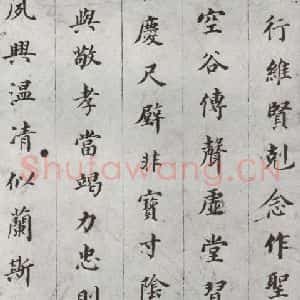 行維賢剋念作聖
空谷傳聲虛堂習
慶尺璧非寶寸陰
與敬孝當竭力忠則
夙興温清似蘭斯
Shufawang.CN